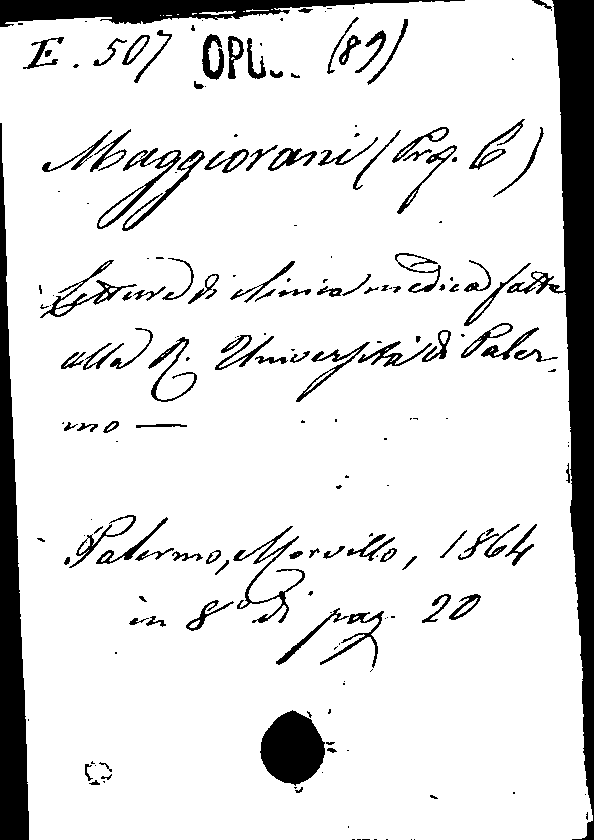 E. 507 OPU... (89)
Maggiorani (Prof. C)
Letture di clinica medica fatte
alla R. Università di Paler-
mo —
Palermo, Morvillo, 1864
in 8° di pag. 20